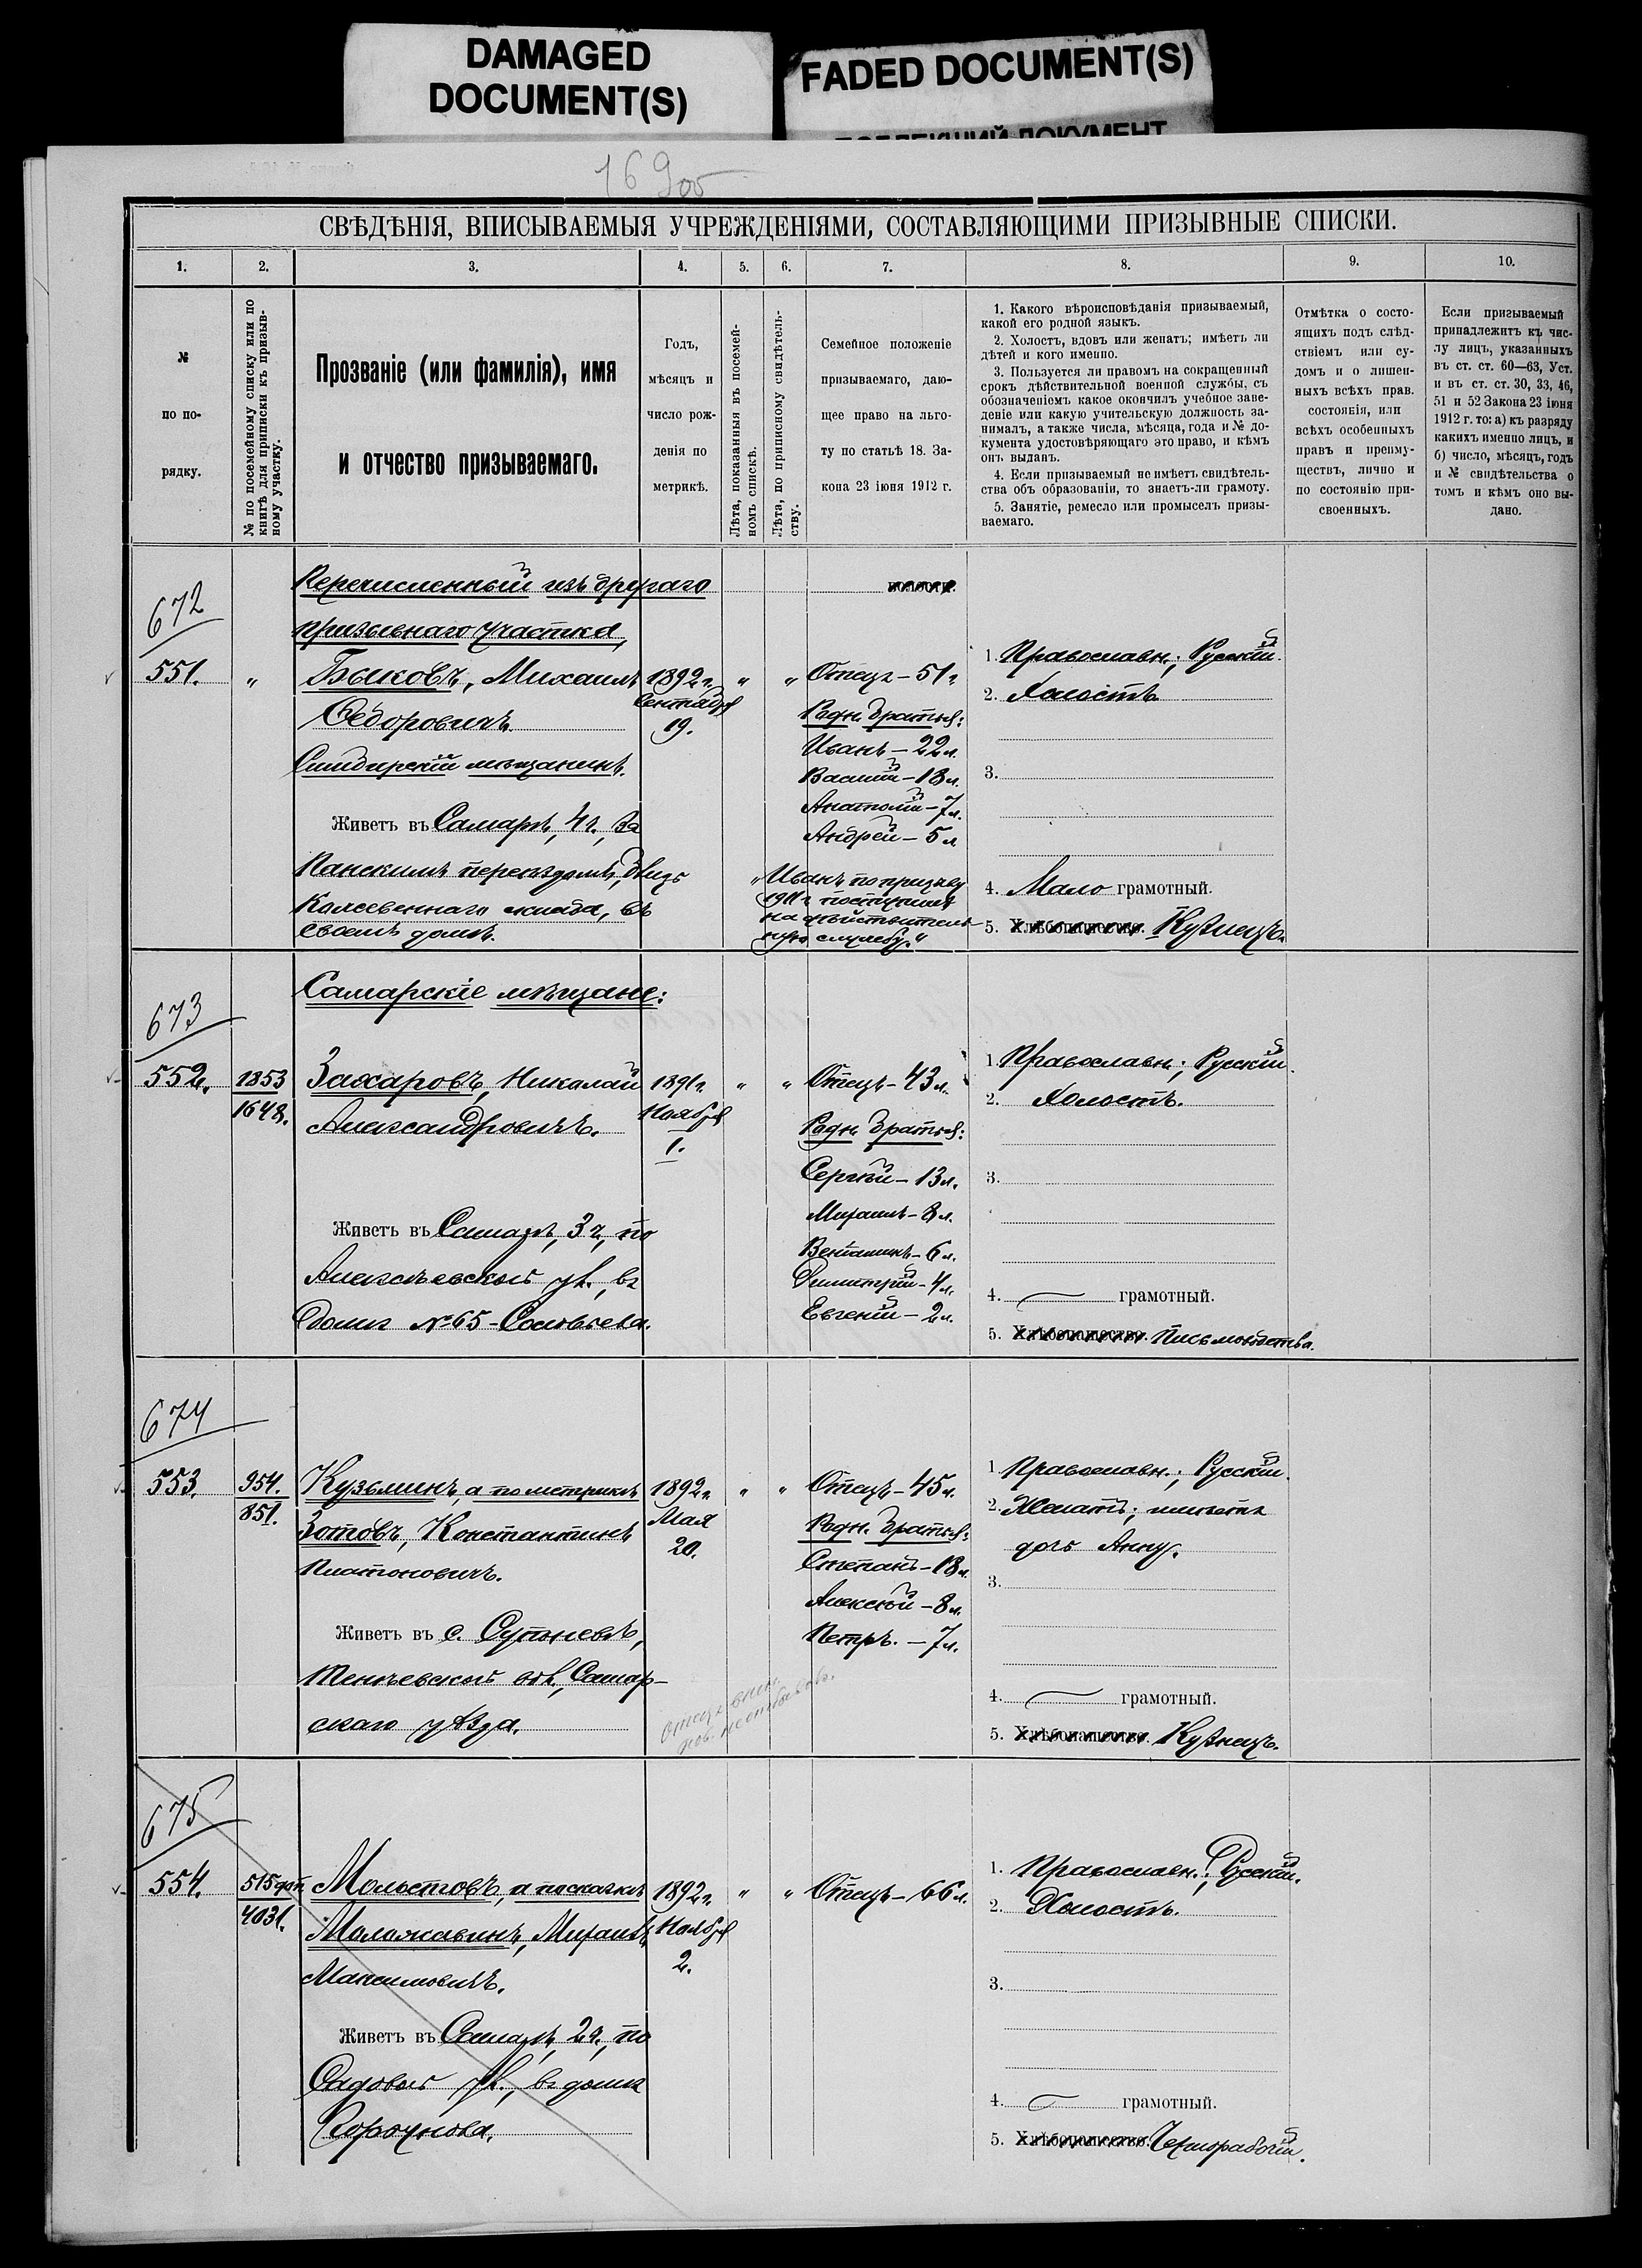 DAMAGED
DOCUMENT(S)
FADED DOCUMENT(S)
169об
СВѢДѢНІЯ, ВПИСЫВАЕМЫЯ УЧРЕЖДЕНІЯМИ, СОСТАВЛЯЮЩИМИ ПРИЗЫВНЫЕ СПИСКИ.
1. 2. 3. 4. 5. 6. 7. 8. 9. 10.
№
по по-
рядку.
№ по посемейному списку или по
книгѣ для приписки къ призыв-
ному участку.
Прозваніе (или фамилія), имя
и отчество призываемаго.
Годъ,
мѣсяцъ и
число рож-
денія по
метрикѣ.
Лѣта, показанныя въ посемей-
номъ спискѣ.
Лѣта, по приписному свидѣтель-
ству.
Семейное положеніе
призываемаго, даю-
щее право на льго-
ту по статьѣ 18. За-
кона 23 іюня 1912 г.
1. Какого вѣроисповѣданія призываемый,
какой его родной языкъ.
2. Холостъ, вдовъ или женатъ; имѣетъ ли
дѣтей и кого именно.
3. Пользуется ли правомъ на сокращенный
срокъ дѣйствительной военной службы, съ
обозначеніемъ какое окончилъ учебное заве-
деніе или какую учительскую должность за-
нималъ, а также числа, мѣсяца, года и № до-
кумента удостовѣряющаго это право, и кѣмъ
онъ выданъ.
4. Если призываемый не имѣетъ свидѣтель-
ства объ образованіи, то знаетъ-ли грамоту.
5. Занятіе, ремесло или промыселъ призы-
ваемаго.
Отмѣтка о состо-
ящихъ подъ слѣд-
ствіемъ или су-
домъ и о лишен-
ныхъ всѣхъ прав.
состоянія, или
всѣхъ особенныхъ
правъ и преиму-
ществъ, лично и
по состоянію при-
своенныхъ.
Если призываемый
принадлежитъ къ чис-
лу лицъ, указанныхъ
въ ст. ст. 60—63, Уст.
и въ ст. ст. 30, 33, 46,
51 и 52 Закона 23 іюня
1912 г. то: а) къ разряду
какихъ именно лицъ, и
б) число, мѣсяцъ, годъ
и № свидѣтельства о
томъ и кѣмъ оно вы-
дано.
672
551. "
Перечисленный изъ другаго волости.
призывнаго участка,
Быковъ, Михаилъ
Ѳедоровичъ
Симбирскій мѣщанинъ.
Живетъ въ Самарѣ, 4 ч., за
Панскимъ переѣздомъ, близъ
Кожевеннаго завода, въ
своемъ домѣ.
1892 г.
Сентября
19.
" "
Отецъ - 51 г.
Родн. братья:
Иванъ - 22 л.
Василій - 18 л.
Анатолій - 7 л.
Андрей - 5 л.
"Иванъ по призыву
1911 г. поступилъ
на дѣйствитель-
ную службу."
1. Православн.; Русскій.
2. Холостъ
3.
4. Мало грамотный.
5. Хлѣбопашество. Кузнецъ.
Самарскіе мѣщане:
673
552.
1853
1648.
Захаровъ, Николай
Александровичъ.
Живетъ въ Самарѣ, 3 ч., по
Алексѣевской ул., въ
домѣ № 65 - Соловьева.
1891 г.
Ноября
1.
" "
Отецъ - 43 л.
Родн. братья:
Сергѣй - 13 л.
Михаилъ - 8 л.
Веніаминъ - 6 л.
Димитрій - 4 л.
Евгеній - 2 л.
1. Православн.; Русскій.
2. Холостъ.
3.
4. грамотный.
5. Хлѣбопашество. Письмоводства.
674
553.
954.
851.
Кузьминъ, а по метрикѣ
Зотовъ, Константинъ
Платоновичъ.
Живетъ въ с. Супоневѣ,
Тенѣевской вол., Самар-
скаго уѣзда.
1892 г.
Мая
20.
" "
Отецъ - 45 л.
Родн. братья:
Степанъ - 18 л.
Алексѣй - 8 л.
Петръ. - 7 л.
1. Православн.; Русскій.
2. Женатъ; имѣетъ
дочь Анну.
3.
4. грамотный.
5. Хлѣбопашество. Кузнецъ.
675
554.
515 доп.
4031.
Мольстовъ, а по сказкѣ
Моложавинъ, Михаилъ
Максимовичъ.
Живетъ въ Самарѣ, 2 ч., по
Садовой ул., въ домѣ
1892 г.
Ноября
2.
" "
Отецъ - 66 л.
1. Православн.; Русскій.
2. Холостъ.
3.
4. грамотный.
5. Хлѣбопашество. Чернорабочій.